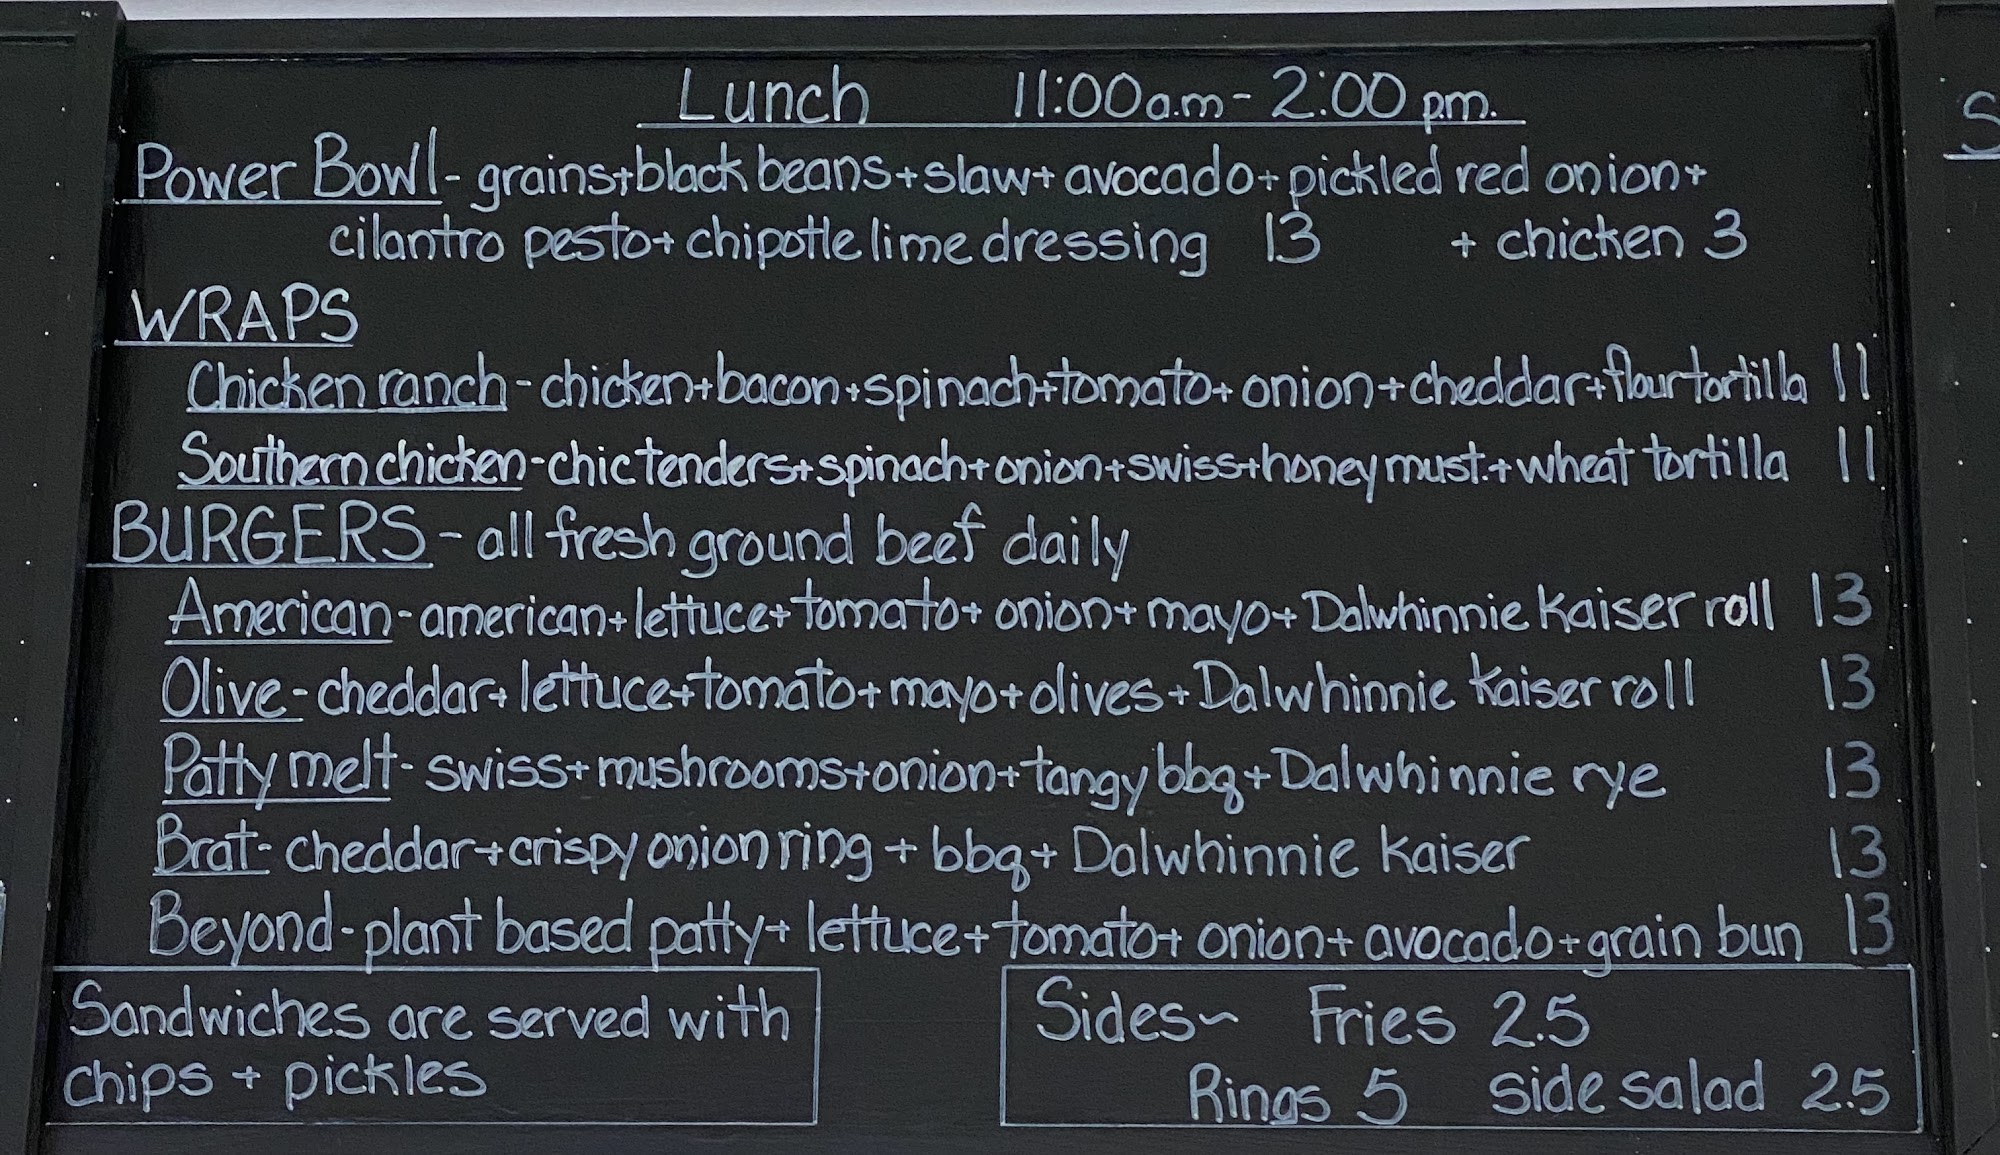 Lunch 11:00a.m - 2:00 p.m.
Power Bowl - grains+black beans+slaw+avocado+pickled red onion+
cilantro pesto+chipotle lime dressing 13 + chicken 3
WRAPS
Chicken ranch - chicken+bacon+spinach+tomato+onion+cheddar+flour tortilla 11
Southern chicken - chic tenders+spinach+onion+swiss+honey must.+wheat tortilla 11
BURGERS - all fresh ground beef daily
American - american+lettuce+tomato+onion+mayo+Dalwhinnie Kaiser roll 13
Olive - cheddar+lettuce+tomato+mayo+olives+Dalwhinnie Kaiser roll 13
Patty melt - swiss+mushrooms+onion+tangy bbq+Dalwhinnie rye 13
Brat - cheddar+crispy onion ring + bbq+Dalwhinnie Kaiser 13
Beyond - plant based patty+lettuce+tomato+onion+avocado+grain bun 13
Sandwiches are served with
chips + pickles
Sides~ Fries 2.5
Rings 5 side salad 2.5
S